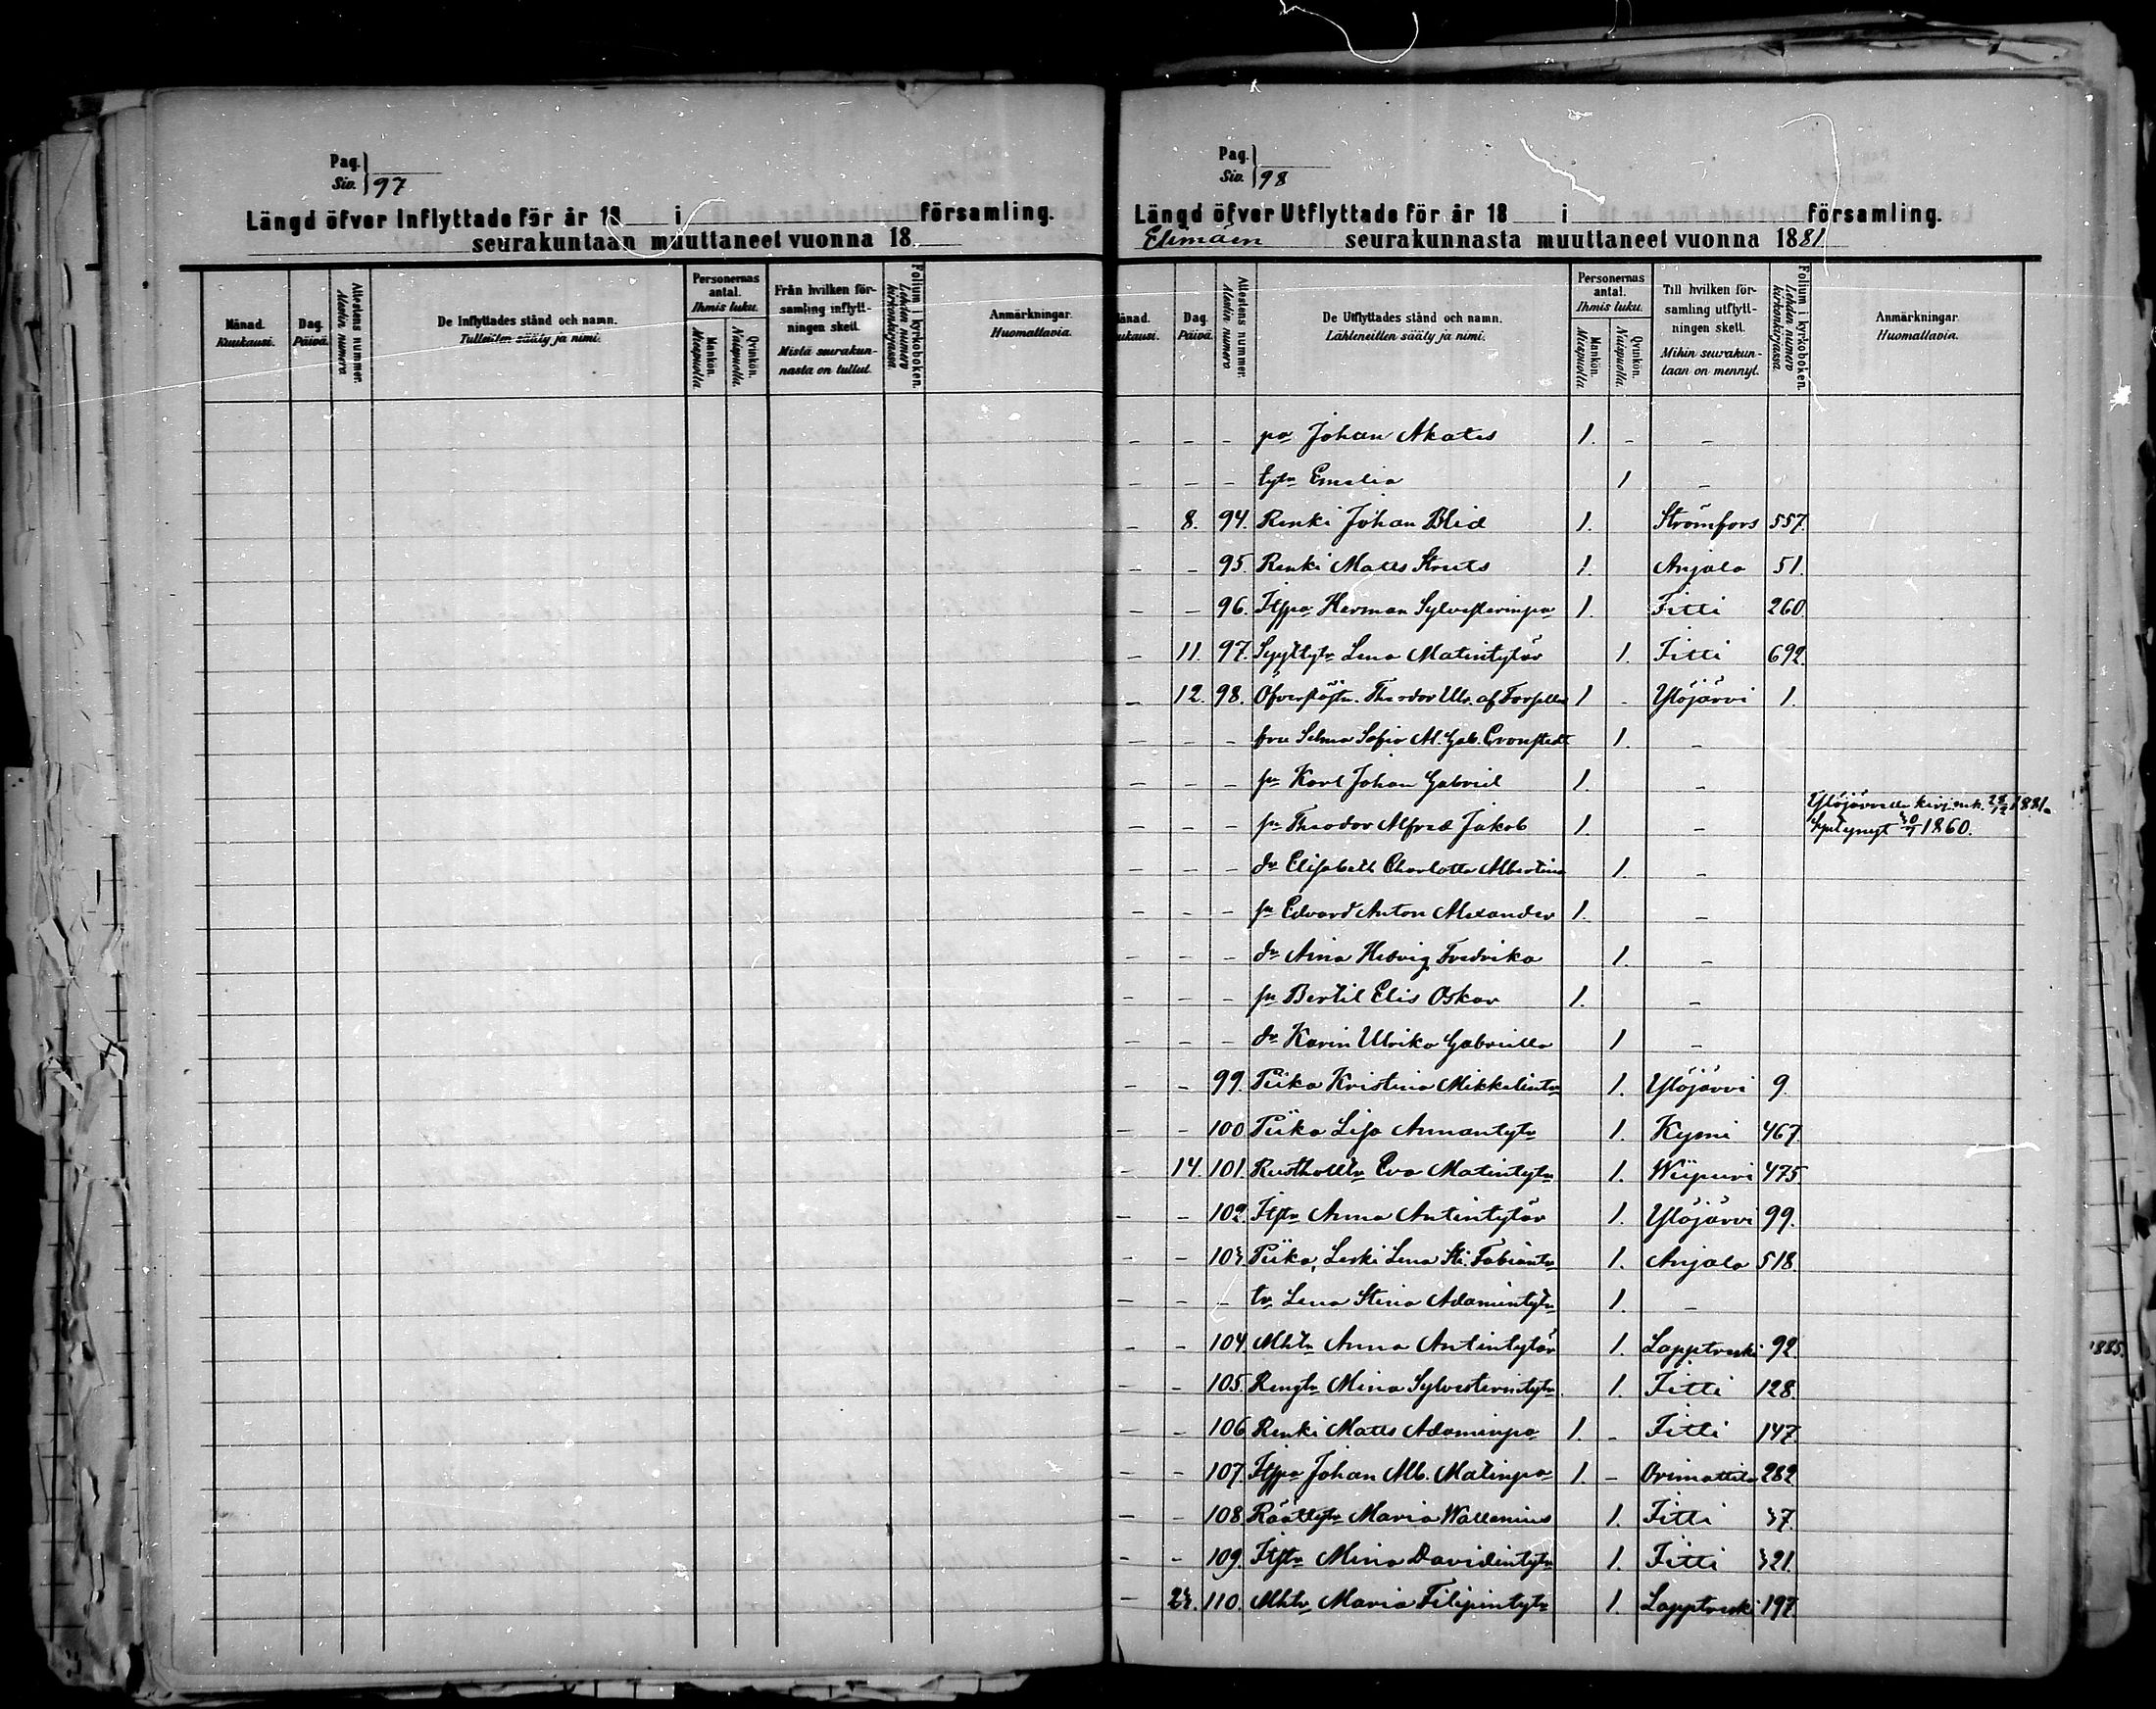 Pag.
Siv. 97
Längd öfver Inflyttade för år 18 i församling.
seurakuntaan muuttaneet vuonna 18
Månad. Kuukausi.
Dag. Päivä.
Attestens nummer. Alestin numero
De Inflyttades stånd och namn. Tulleitten sääty ja nimi.
Personernas antal. Ihmis luku.
Mankön. Miespuolia.
Qvinkön. Naispuolia.
Från hvilken församling inflyttningen skett. Mistä seurakunnasta on tullut.
Folium i kyrkoboken. Lehden numero kirkonkirjassa.
Anmärkningar. Huomattavia.
Pag.
Siv. 98
Längd öfver Utflyttade för år 18 i församling.
Elimäen seurakunnasta muuttaneet vuonna 1881
Månad. Kuukausi.
Dag. Päivä.
Attestens nummer. Alestin numero
De Utflyttades stånd och namn. Lähteneitten sääty ja nimi.
Personernas antal. Ihmis luku.
Mankön. Miespuolia.
Qvinkön. Naispuolia.
Till hvilken församling utflyttningen skett. Mihin seurakuntaan on mennyt.
Folium i kyrkoboken. Lehden numero kirkonkirjassa.
Anmärkningar. Huomattavia.
- - - po Johan Akates 1. - -
- - - tytr Emelia 1 -
- 8. 94. Renki Johan Blid 1. Strömfors 557.
- - 95. Renki Matts Struts 1. Anjala 51.
- - 96. Itspo Herman Sylvesterinpo 1. Iitti 260.
- 11. 97. Lena Matintytär 1. Iitti 692.
- 12. 98. Theodor Ulr. af Forselles 1 - Ylöjärvi 1.
- - - fru Selma Sofia M. Gab. Cronstedt 1. -
- - - sn Karl Johan Gabriel 1. -
- - - sn Theodor Alfred Jakob 1. - Ylöjärvelle kirj. muk. 28/12 1881. Syntynyt 30/1 1860.
- - - dr Elisabeth Charlotta Albertina 1. -
- - - sn Edvard Anton Alexander 1. -
- - - dr Aina Hedvig Fredrika 1. -
- - - sn Bertil Elis Oskar 1. -
- - - dr Karin Ulrika Gabriella 1 -
- - 99. Piika Kristina Mikkelintr 1. Ylöjärvi 9.
- - 100 Piika Lisa Annantytr 1. Kymi 467
- 14. 101. Rustholltr Eva Matintytr 1. Wiipuri 475
- - 102. Itstr Anna Antintytär 1. Ylöjärvi 99.
- - 103 Piika, Leski Lena Sti. Fabiantr 1. Anjala 518.
- - - tr Lena Stina Adamintytr 1. -
- - 104 Mktr Anna Antintytär 1. Lapptreski 92.
- - 105. Rengtr Mina Sylvesterintytr 1. Iitti 128.
- - 106 Renki Matts Adaminpo 1. - Iitti 147.
- - 107 Itspo Johan Alb. Matinpo 1. - Orimattila 282
- - 108 Räättytr Maria Wallenius 1. Iitti 37.
- - 109. Itstr Mina Davidintytr 1. Iitti 321.
- 23. 110. Mktr Maria Filipintytr 1. Lapptreski 197
1885.